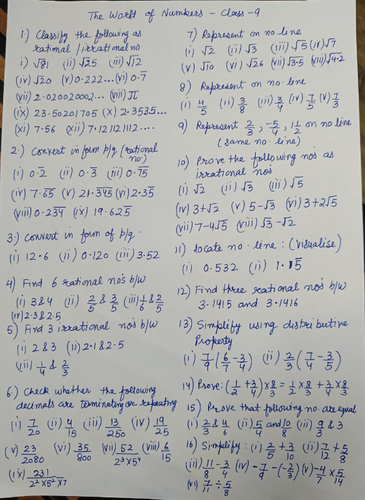 The World of Numbers - Class-9
1) Classify the following as
rational / irrational no
(i) √81 (ii) √25 (iii) √12
(iv) √20 (v) 0.222... (vi) 0.7̅
(vii) 2.020020002... (viii) √π
(ix) 23.50201705 (x) 2.3535...
(xi) 7.56 (xii) 7.12112111 2....
2.) Convert in form p/q (rational
no)
(i) 0.2̅ (ii) 0.3̅ (iii) 0.7̅5̅
(iv) 7.6̅5̅ (v) 21.3̅4̅5̅ (vi) 2.3̅5̅
(viii) 0.23̅4̅ (ix) 19.625̅
3) Convert in form of p/q.
(i) 12.6 (ii) 0.120 (iii) 3.52
4) Find 6 rational no's b/w
(i) 3 & 4 (ii) 2/5 & 3/5 (iii) 1/6 & 2/5
(iv) 2.3 & 2.5
5) Find 3 irrational no's b/w
(i) 2 & 3 (ii) 2.1 & 2.5
(iii) 1/4 & 2/3
6) Check whether the following
decimals are terminating or repeating
(i) 7/20 (ii) 4/15 (iii) 13/250 (iv) 19/25
(v) 23/2080 (vi) 35/800 (vii) 52/2³×5⁴ (viii) 6/15
(ix) 231/2²×5²×7
7) Represent on no line
(i) √2 (ii) √3 (iii) √5 (iv) √7
(v) √10 (vi) √26 (vii) √3.5 (viii) √4.2
8) Represent on no. line
(i) 4/5 (ii) 3/8 (iii) 3/4 (iv) 7/5 (v) 7/3
9) Represent 2/3, -5/4, 1 1/2 on no line
(same no. line)
10) Prove the following no's as
irrational no's
(i) √2 (ii) √3 (iii) √5
(iv) 3+√2 (v) 5-√3 (vi) 3+2√5
(vii) 7-4√5 (viii) √3-√2
11) locate no line: (visualise)
(i) 0.532 (ii) 1.1̅5̅
12) Find three rational no's b/w
3.1415 and 3.1416
13) Simplify using distributive
Property
(i) 7/9 (6/7 - 3/4) (ii) 2/3 (7/4 - 3/5)
14) Prove: (1/2 + 3/4) × 8/3 = 1/2 × 8/3 + 3/4 × 8/3
15) Prove that following no. are equal
(i) 2/3 & 4/6 (ii) 5/4 and 10/8 (iii) 9/3 & 3
16) Simplify: (i) 2/5 + 3/6 (ii) 7/12 + 5/8
(iii) 11/8 - 3/4 (iv) -7/9 - (-2/3) (v) -4/7 × 5/14
(vi) 7/11 ÷ 5/8